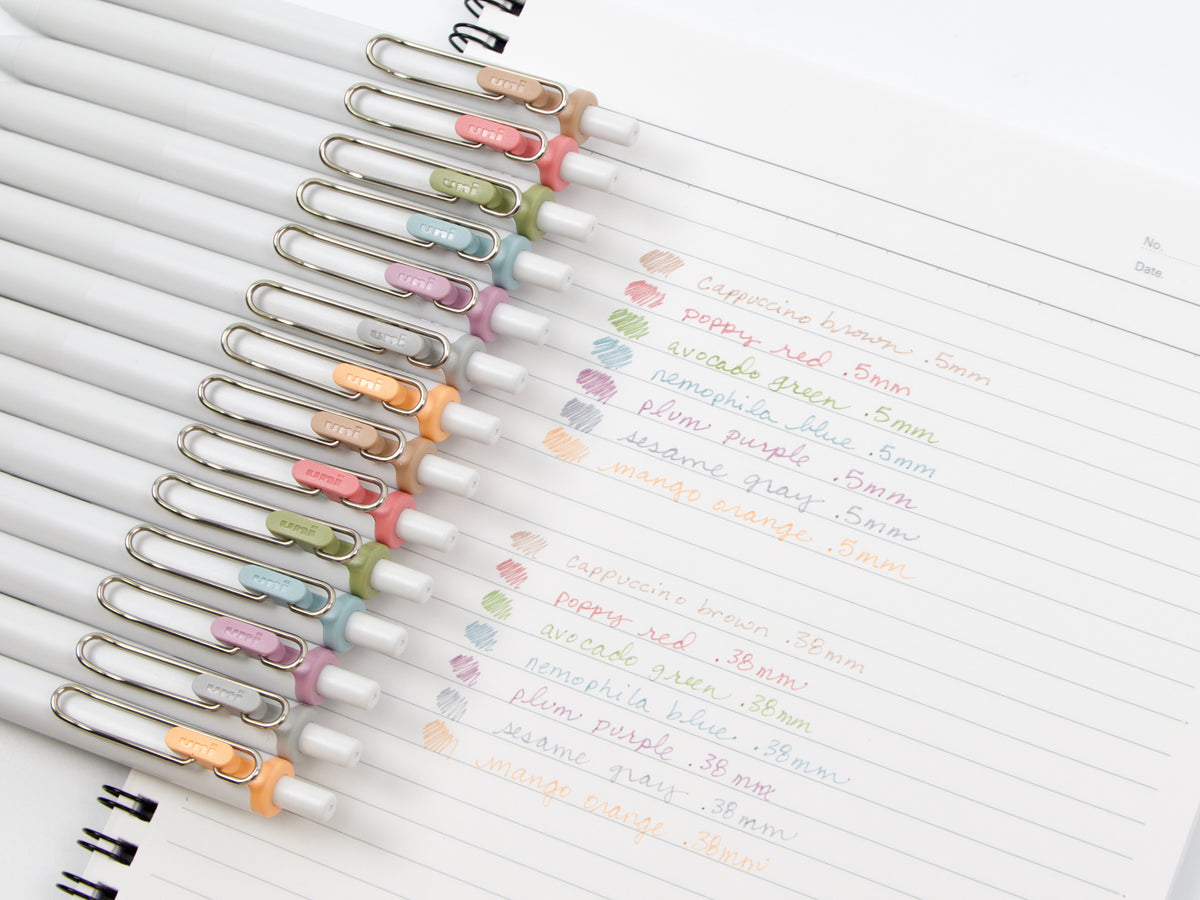 No.
Date.
uni
uni
uni
uni
uni
uni
uni
uni
uni
uni
uni
uni
uni
uni
Cappuccino brown .5mm
poppy red .5mm
avocado green .5mm
nemophila blue .5mm
plum purple .5mm
sesame gray .5mm
mango orange .5mm
cappuccino brown .38mm
poppy red .38mm
avocado green .38mm
nemophila blue .38mm
plum purple .38mm
sesame gray .38mm
mango orange .38mm